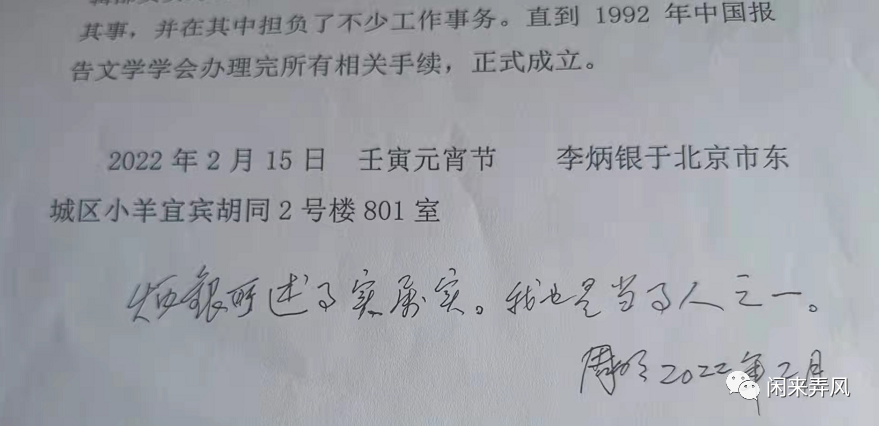 其事，并在其中担负了不少工作事务。直到 1992 年中国报
告文学学会办理完所有相关手续，正式成立。
2022 年 2 月 15 日 壬寅元宵节 李炳银于北京市东
城区小羊宜宾胡同 2 号楼 801 室
炳银所述事实属实。我也是当事人之一。
周明 2022年2月
闲来弄风